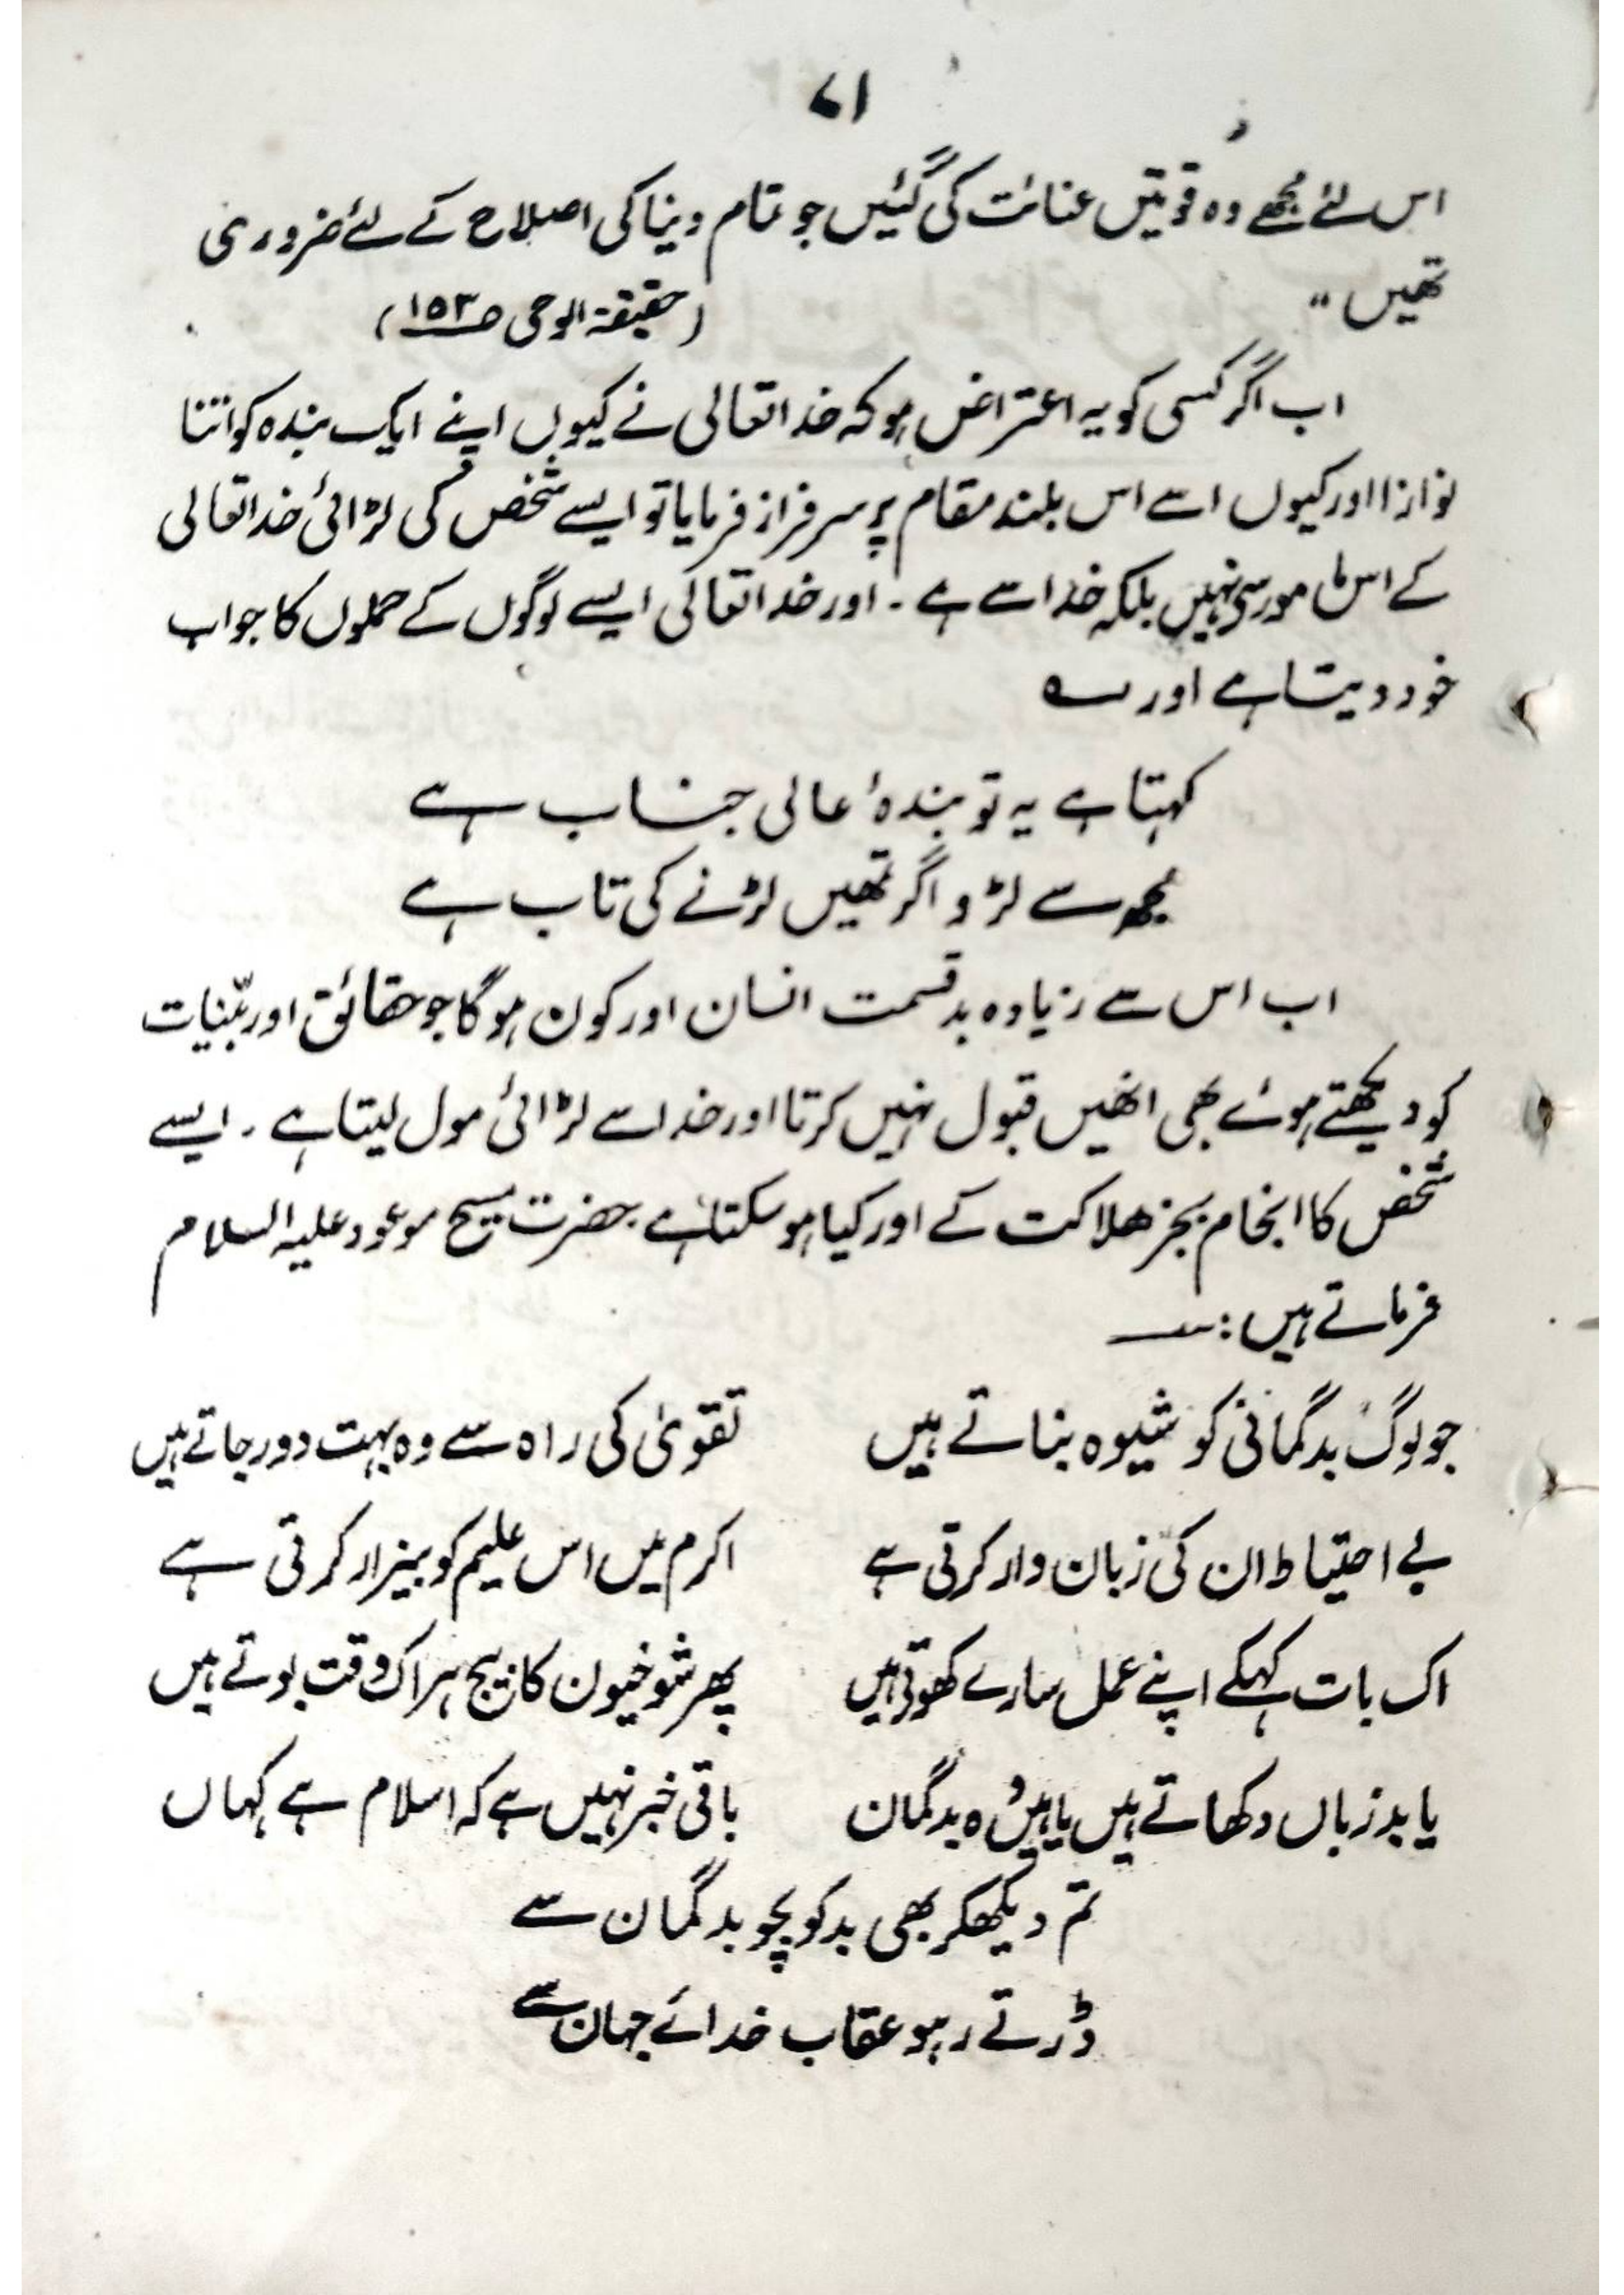 ۷۱
اس لئے مجھے وہ قوتیں عنائت کی گئیں جو تمام دینا کی اصلاح کے لئے ضروری
تھیں "
(حقیقۃ الوحی صـ۱۵۳)
اب اگر کسی کو یہ اعتراض ہو کہ خدا تعالی نے کیوں اپنے ایک بندہ کو اتنا
نوازا اور کیوں اسے اس بلند مقام پر سرفراز فرمایا تو ایسے شخص کی لڑائی خدا تعالی
کے اس مامور سے نہیں بلکہ خدا سے ہے ۔ اور خدا تعالی ایسے لوگوں کے حملوں کا جواب
خود دیتا ہے اور ؎
کہتا ہے یہ تو بندۂ عالی جناب ہے
مجھ سے لڑو اگر تمھیں لڑنے کی تاب ہے
اب اس سے زیادہ بدقسمت انسان اور کون ہو گا جو حقائق اور بیّنات
کو دیکھتے ہوئے بھی انھیں قبول نہیں کرتا اور خدا سے لڑائی مول لیتا ہے ۔ ایسے
شخص کا انجام بجز ھلاکت کے اور کیا ہو سکتا ہے حضرت مسیح موعود علیہ السلام
فرماتے ہیں :؎
جو لوگ بدگمانی کو شیوہ بناتے ہیں تقویٰ کی راہ سے وہ بہت دور جاتے ہیں
بے احتیاط ان کی زبان وار کرتی ہے اکرم میں اس علیم کو بیزار کرتی ہے
اک بات کہکے اپنے عمل سارے کھوتے ہیں پھر شوخیون کا بیج ہر اک وقت بوتے ہیں
یا بد زباں دکھاتے ہیں یا ہیں وہ بدگمان باقی خبر نہیں ہے کہ اسلام ہے کہاں
تم دیکھکر بھی بد کو بچو بدگمان سے
ڈرتے رہو عقاب خدائے جہان سے